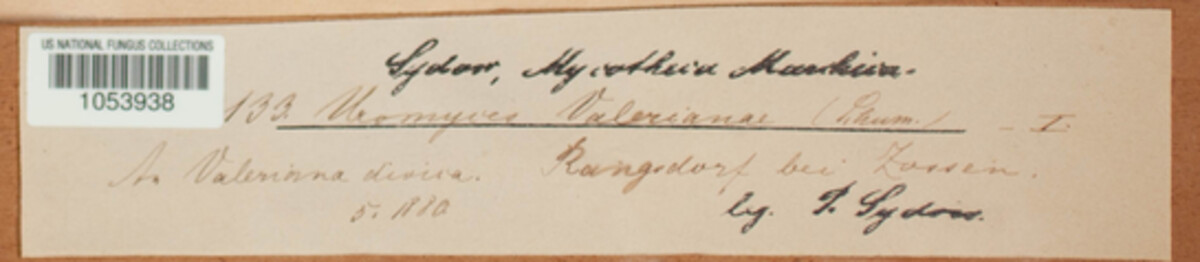 US NATIONAL FUNGUS COLLECTIONS
1053938
Sydow, Mycotheca Marchica.
133. Uromyces Valerianae (Schum.) - I.
An Valeriana dioica. Rangsdorf bei Zossen.
5. 1880
leg. P. Sydow.